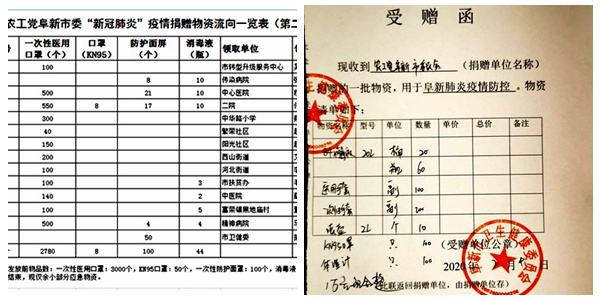 农工党阜新市委“新冠肺炎”疫情捐赠物资流向一览表（第二
一次性医用口罩（个） 口罩（KN95） 防护面屏（个） 消毒液（瓶） 领取单位
100 市转型升级服务中心
8 10 传染病院
500 21 10 中心医院
550 8 17 10 二院
300 中华路小学
40 繁荣社区
150 阳光社区
200 西山街道
100 河北街道
100 3 市扶贫办
140 2 中医院
100 5 富荣镇黑地庙村
500 4 4 精神病院
50 市卫健委
2780 8 100 44
发放前物品数：一次性医用口罩：3000个，KN95口罩：50个，一次性防护面罩：100个，消毒液
结束，现仅余小部分应急物资。
受赠函
现收到 农工党阜新市委会 （捐赠单位名称）
捐赠的一批物资，用于阜新肺炎疫情防控。物资
清单如下：
物资名称 型号 单位 数量 单价 总价 备注
20L 桶 20
瓶 60
医用手套 副 100
副 200
2L 个 10
KN95口罩 只 100
（受赠单位公章）
2020年 月 日
此联返回捐赠单位，由捐赠单位存）